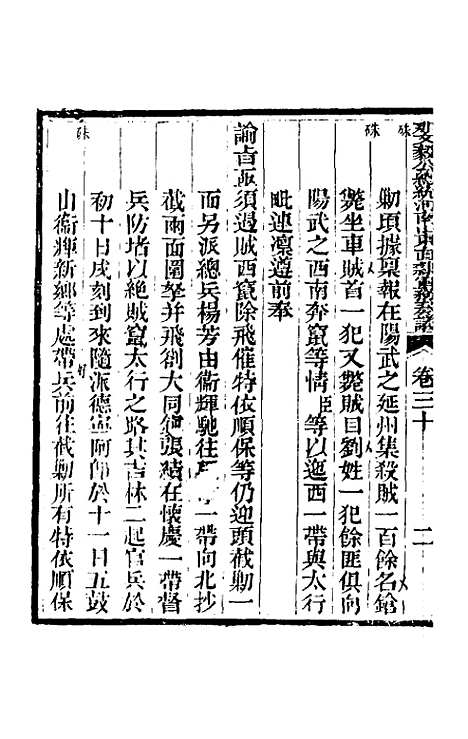 卷三十
二
硃
硃
勦頃據稟報在陽武之延州集殺賊一百餘名鎗
斃坐車賊首一犯又斃賊目劉姓一犯餘匪俱向
陽武之西南奔竄等情臣等以迤西一帶與太行
毗連凜遵前奉
諭旨亟須遏賊西竄除飛催特依順保等仍迎頭截勦一
面另派總兵楊芳由衞輝馳往一帶向北抄
截兩面圍拏并飛劄大同鎮張績在懷慶一帶督
兵防堵以絕賊竄太行之路其吉林二起官兵於
硃
初十日戌刻到來隨派德寧阿帥於十一日五鼓
山衞輝新鄉等處帶兵前往截勦所有特依順保